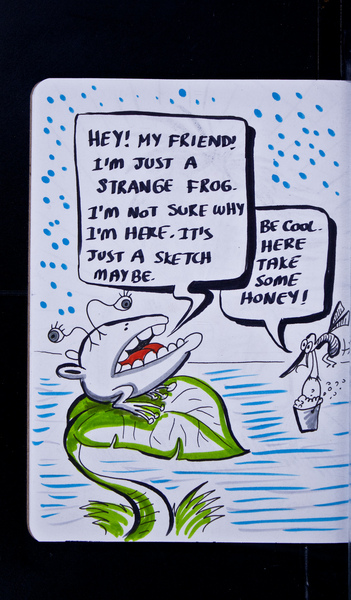 HEY! MY FRIEND!
I'M JUST A
STRANGE FROG.
I'M NOT SURE WHY
I'M HERE. IT'S
JUST A SKETCH
MAYBE.
BE COOL.
HERE
TAKE
SOME
HONEY!